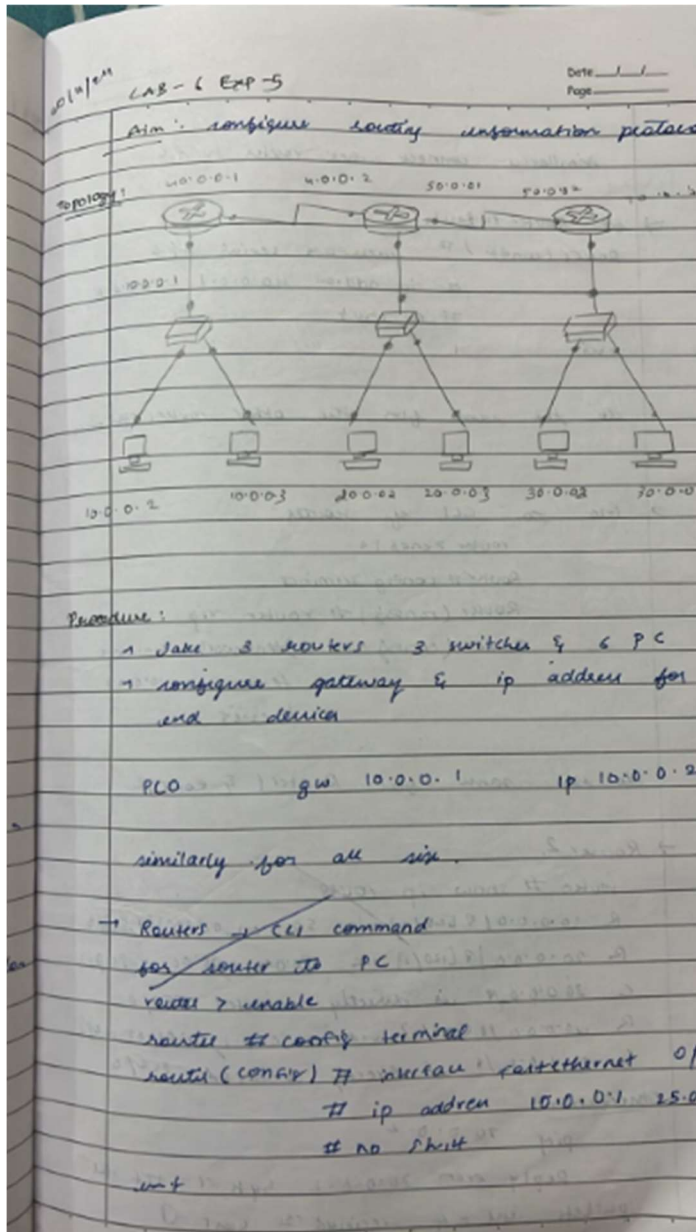 LAB-6 EXP-5
Date
Page
Aim: configure routing information protoco
Topology:
40.0.0.1 4.0.0.2 50.0.01 50.0.02
10.0.0.1
10.0.0.2 10.0.0.3 20.0.02 20.0.03 30.0.02 30.0.0
Procedure:
Take 3 routers 3 switches & 6 PC
configure gateway & ip address for
end devices
PC0 gw 10.0.0.1 ip 10.0.0.2
similarly for all six.
→ Routers → CLI command
for router to PC
router > enable
router # config terminal
router (config) # interface fastethernet 0/
# ip address 10.0.0.1 25.0
# no shut
exit